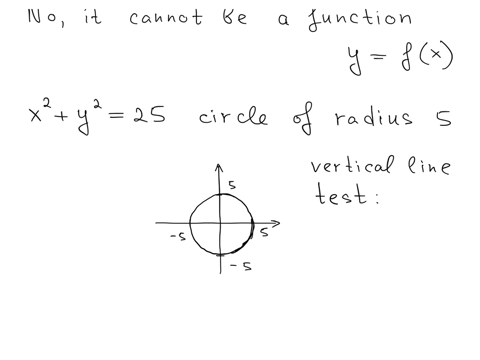 No, it cannot be a function
y = f(x)
x² + y² = 25 circle of radius 5
vertical line
test:
5
-5
5
-5